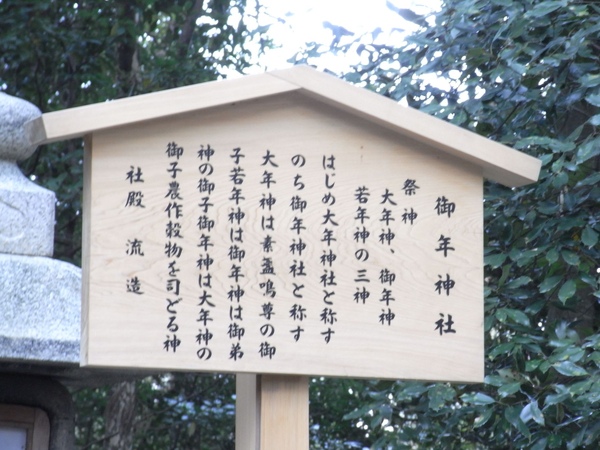 御年神社
祭神
大年神、御年神
若年神の三神
はじめ大年神社と称す
のち御年神社と称す
大年神は素盞嗚尊の御
子若年神は御年神は御弟
神の御子御年神は大年神の
御子農作穀物を司どる神
社殿 流造